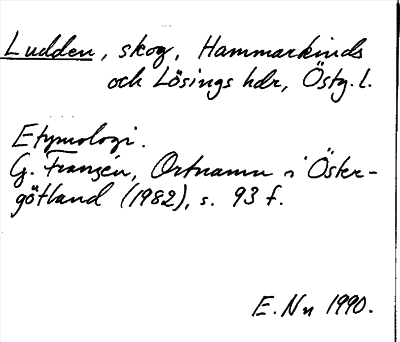 Ludden, skog, Hammarkinds
och Lösings hdr, Östg. l.
Etymologi.
G. Franzén, Ortnamn i Öster-
götland (1982), s. 93 f.
E. Nn 1990.